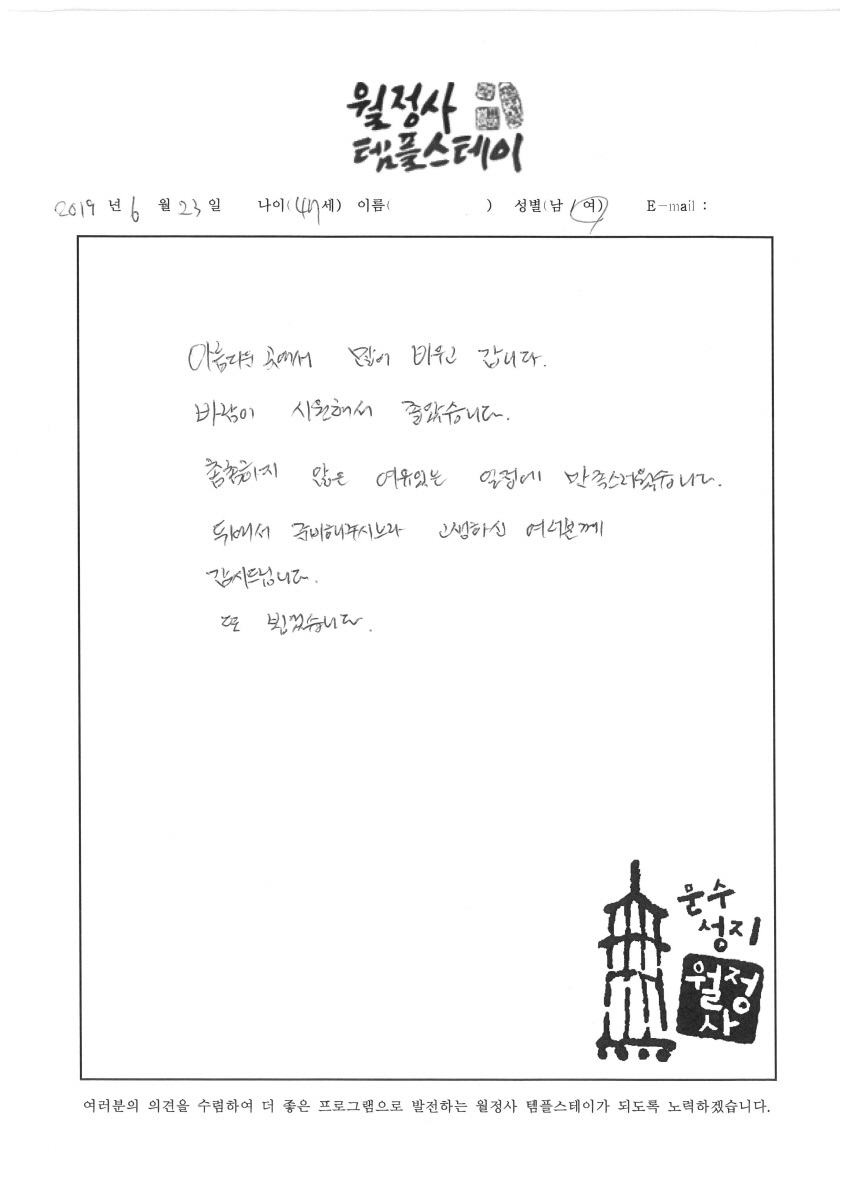 월정사
템플스테이
2019 년 6 월 23 일 나이(47세) 이름( ) 성별(남 / 여) E-mail :
아름다운 곳에서 많이 비우고 갑니다.
바람이 시원해서 좋았습니다.
촘촘하지 않은 여유있는 일정에 만족스러웠습니다.
뒤에서 준비해주시느라 고생하신 여러분께
감사드립니다.
또 뵙겠습니다.
문수
성지
월정
사
여러분의 의견을 수렴하여 더 좋은 프로그램으로 발전하는 월정사 템플스테이가 되도록 노력하겠습니다.